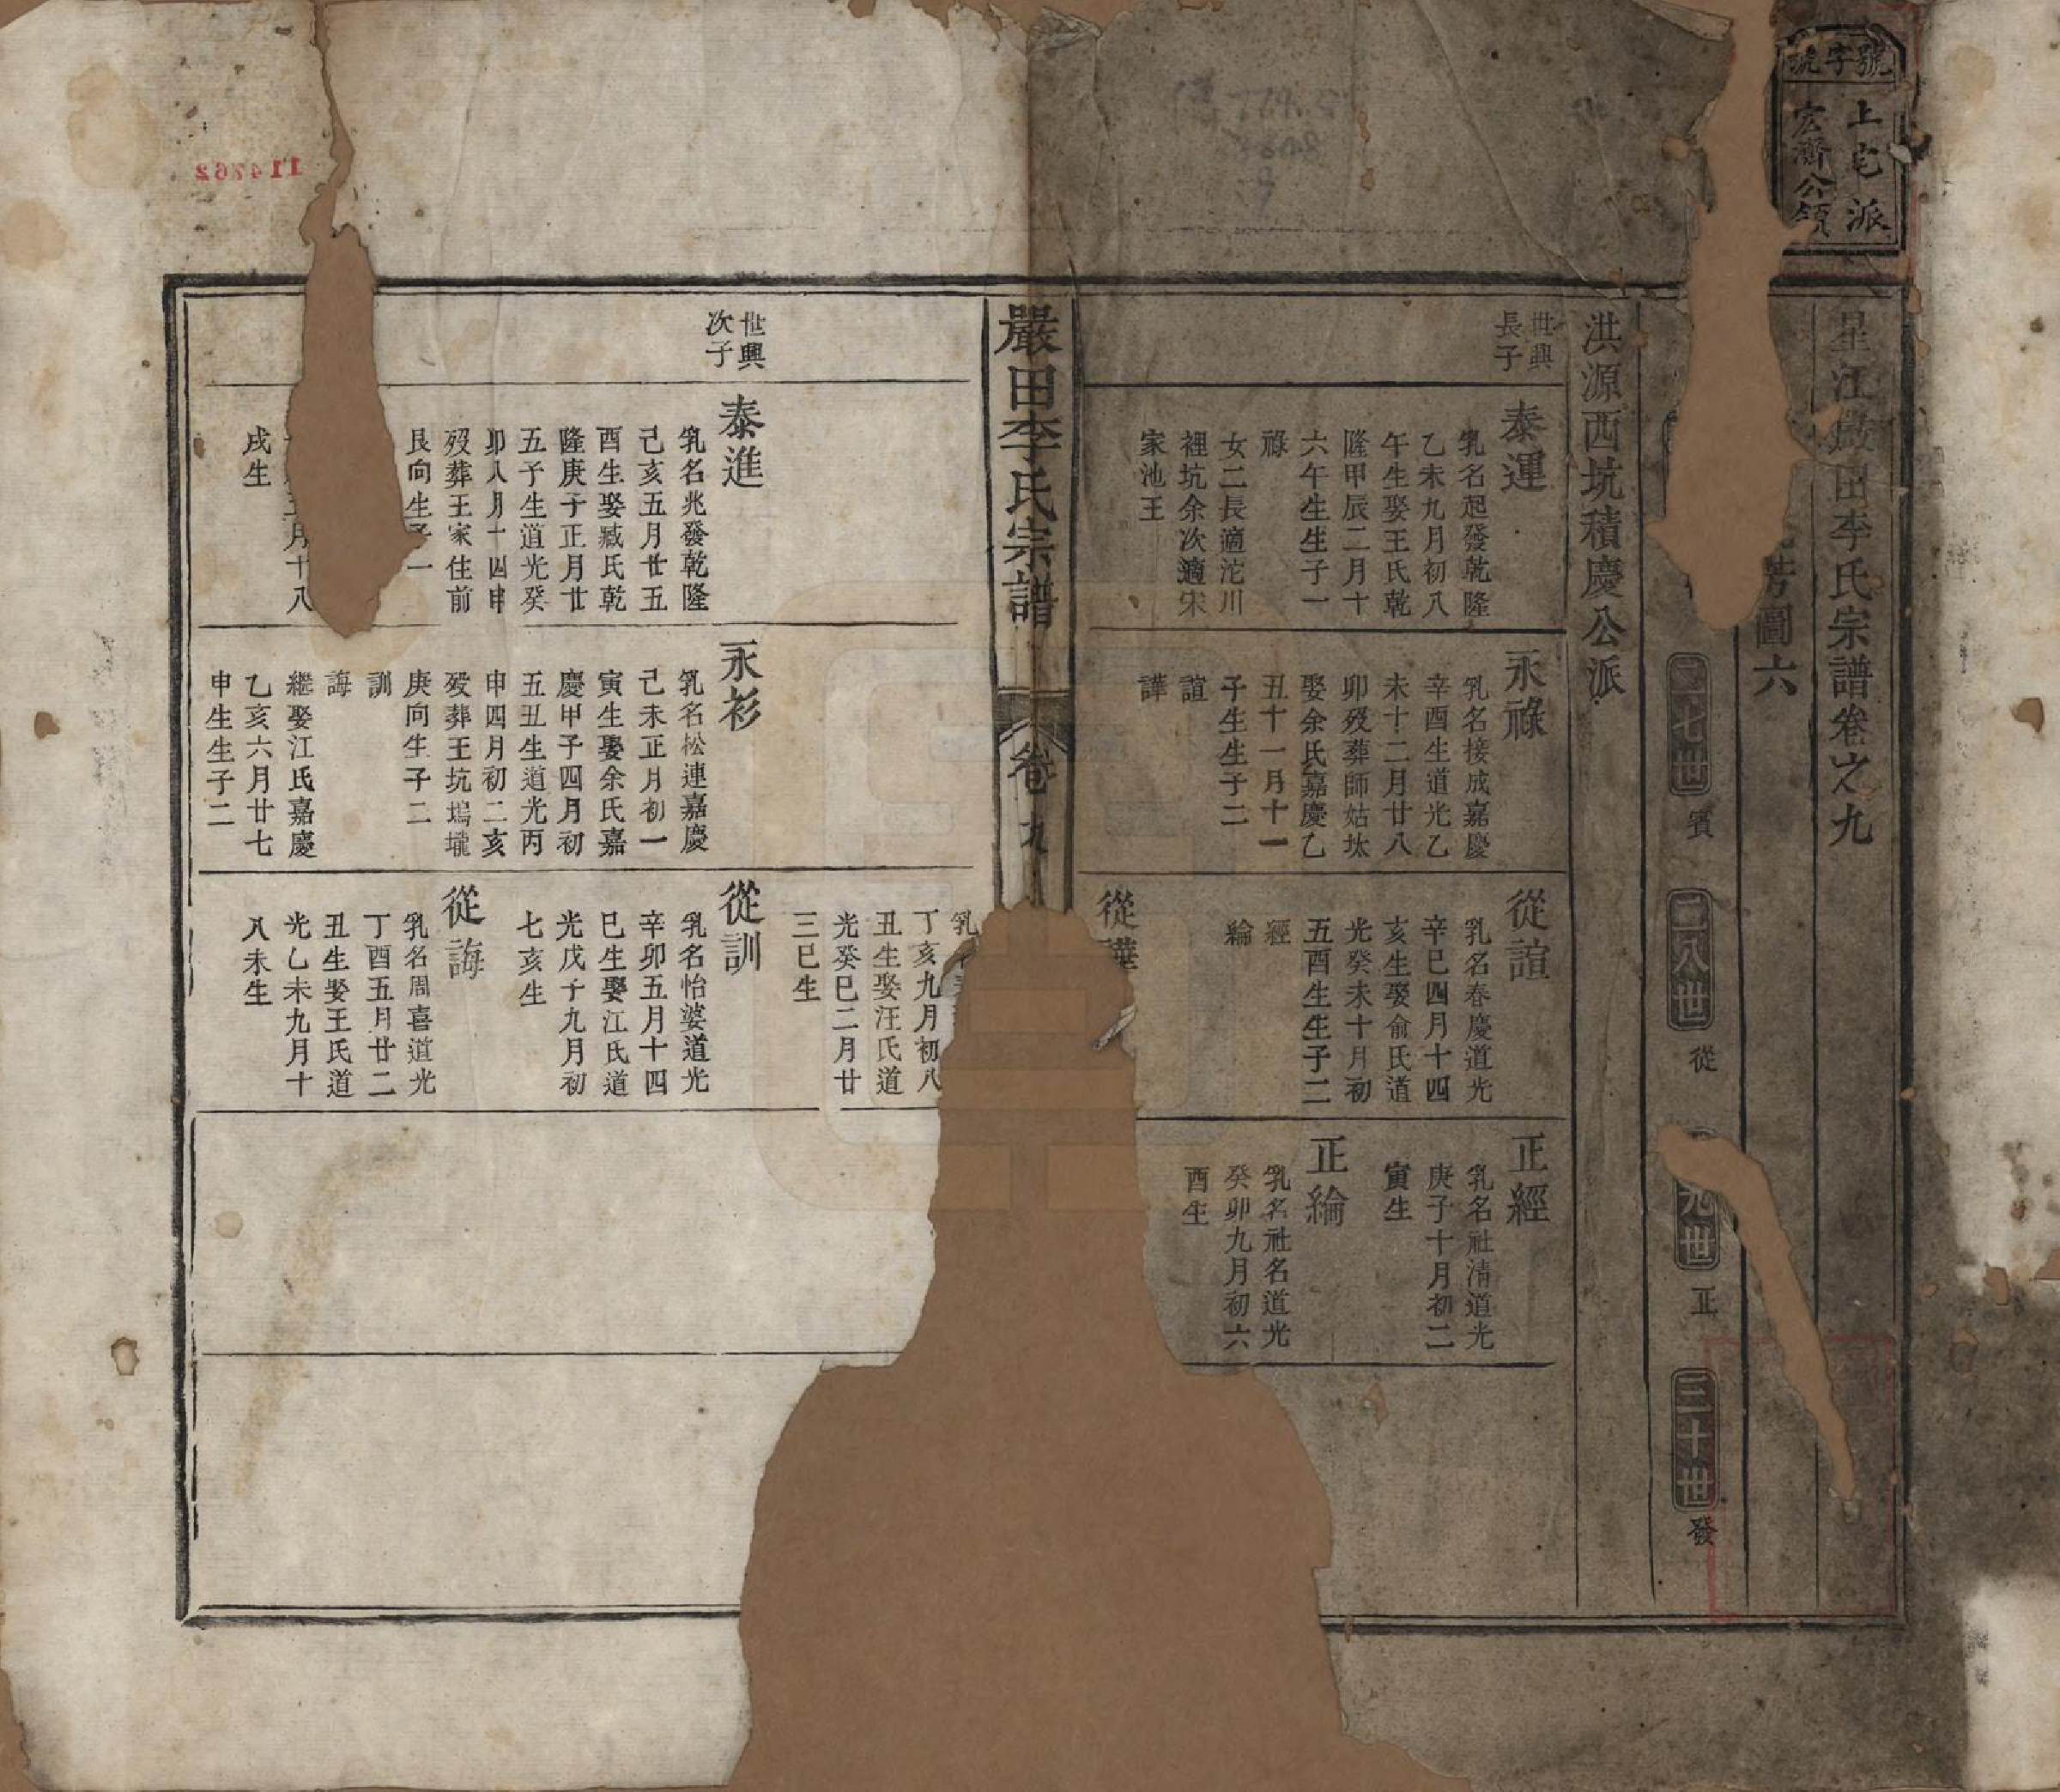 號字號
上宅派
宏濟公領
星江嚴田李氏宗譜卷之九
芳圖六
二七世 賓
二八世 從
九世 正
三十世 發
洪源西坑積慶公派
世興
長子
泰運
乳名起發乾隆
乙未九月初八
午生娶王氏乾
隆甲辰二月十
六午生生子一
祿
女二長適沱川
裡坑余次適宋
家池王
永祿
乳名接成嘉慶
辛酉生道光乙
未十二月廿八
卯歿葬師姑㘰
娶余氏嘉慶乙
丑十一月十一
子生生子二
誼
譁
從誼
乳名春慶道光
辛巳四月十四
亥生娶俞氏道
光癸未十月初
五酉生生子二
經
綸
從譁
正經
乳名社清道光
庚子十月初二
寅生
正綸
乳名社名道光
癸卯九月初六
酉生
嚴田李氏宗譜
卷九
乳
丁亥九月初八
丑生娶汪氏道
光癸巳二月廿
三巳生
世興
次子
泰進
乳名兆發乾隆
己亥五月廿五
酉生娶臧氏乾
隆庚子正月廿
五子生道光癸
卯八月十四申
歿葬王家住前
艮向生子一
月十八
戌生
永衫
乳名松連嘉慶
己未正月初一
寅生娶余氏嘉
慶甲子四月初
五丑生道光丙
申四月初二亥
歿葬王坑塢壠
庚向生子二
訓
誨
繼娶江氏嘉慶
乙亥六月廿七
申生生子二
從訓
乳名怡婆道光
辛卯五月十四
巳生娶江氏道
光戊子九月初
七亥生
從誨
乳名周喜道光
丁酉五月廿二
丑生娶王氏道
光乙未九月十
八未生
114762